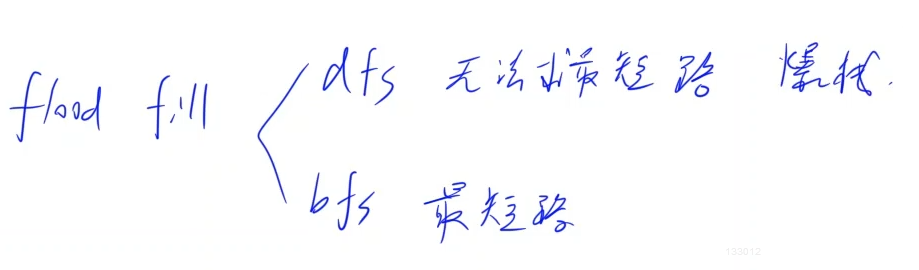 flood fill
dfs 无法求最短路 爆栈.
bfs 最短路
133012